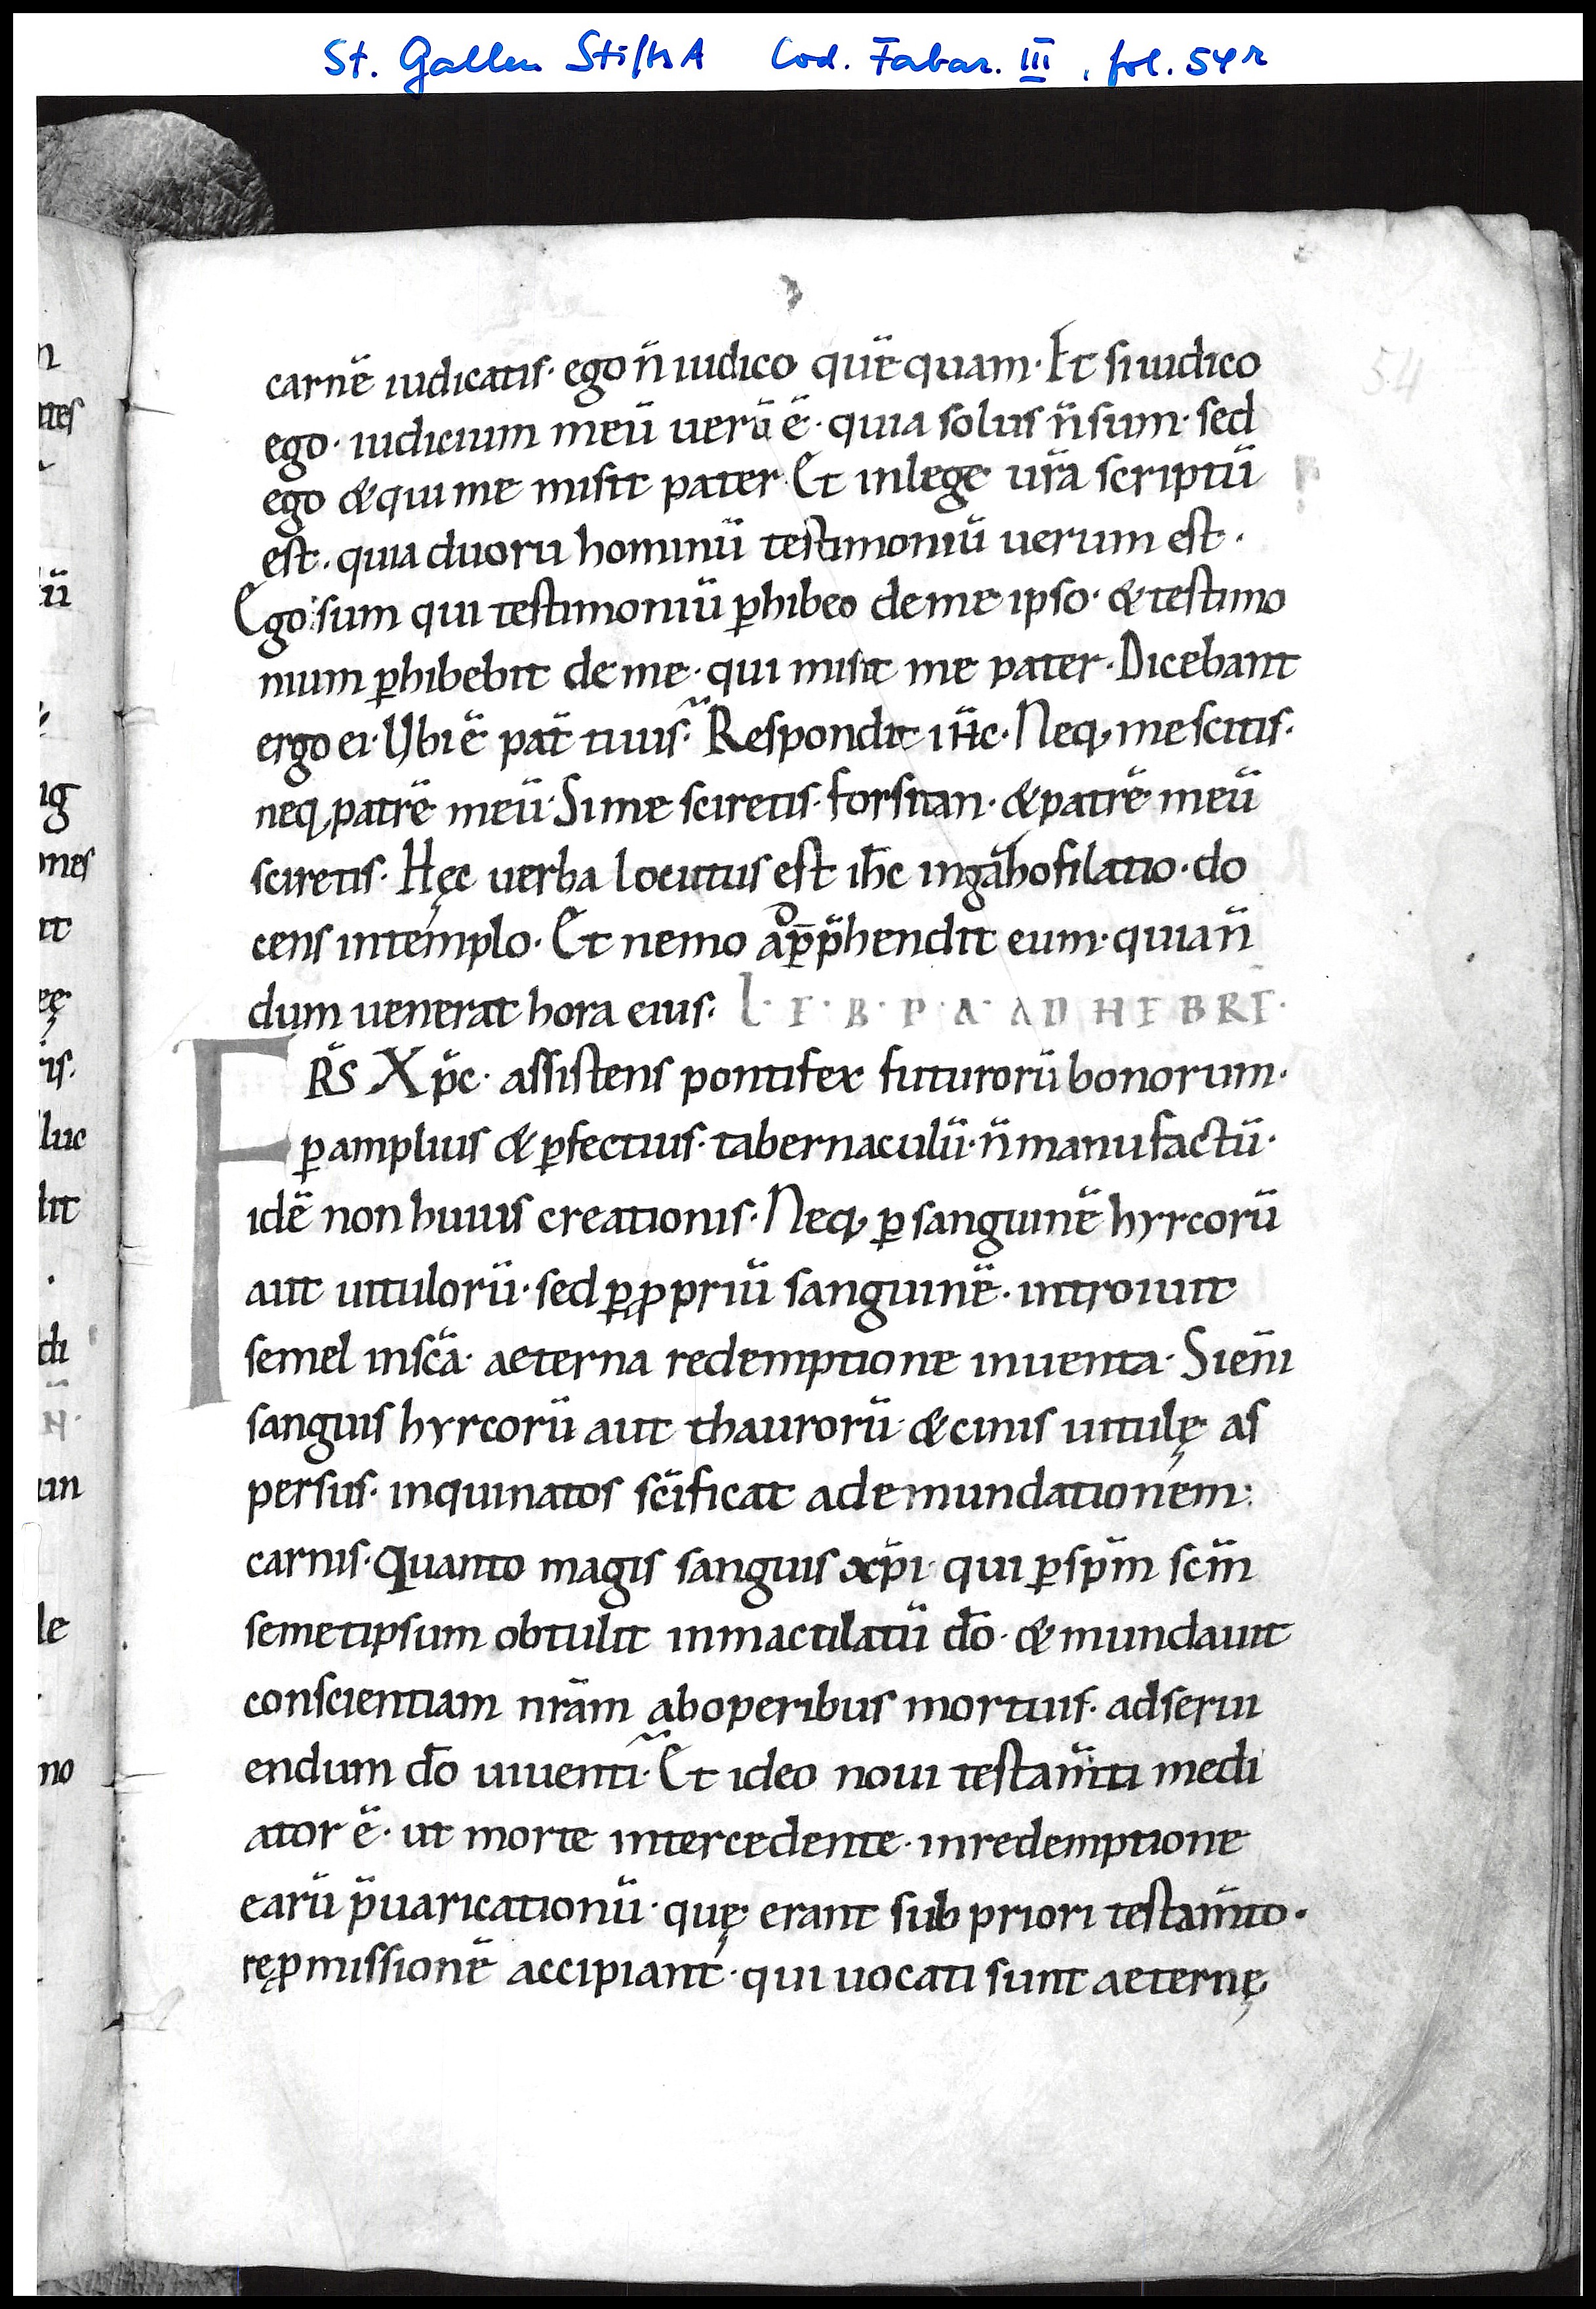 St. Gallen StiftsA Cod. Fabar. III, fol. 54r
54
carnē iudicatis· ego n̄ iudico quēquam· Et si iudico
ego· iudicium meū uerū ē· quia solus n̄ sum· sed
ego & qui me misit pater· Et in lege ur̄a scriptū
est· quia duoru hominū testimoniū uerum est·
Ego sum qui testimoniū ꝑhibeo de me ipso· & testimo
nium ꝑhibebit de me· qui misit me pater· Dicebant
ergo ei· Ubi ē pat̄ tuus· Respondit iH̄c· Neq, me scitis·
neq, patrē meū· Si me sciretis· forsitan· & patrē meū
sciretis· Hęc uerba locutus est ih̄c in gāhofilatio· do
cens in templo· Et nemo app̄hendit eum· quia n̄
dum uenerat hora eius· L· E· B· P· A· AD HEBRE·
FR̄S Xp̄c· assistens pontifex futurorū bonorum·
ꝑ amplius & ꝑfectius· tabernaculū· n̄ manufactū·
idē non huius creationis· Neq, ꝑ sanguinē hyrcorū
aut uitulorū· sed ꝑ ꝓpriū sanguinē· introiuit
semel in sc̄a· aeterna redemptione inuenta· Si eni̅
sanguis hyrcorū aut thaurorū· & cinis uitulę as
persus· inquinatos sc̄ificat ad emundationem·
carnis· Quanto magis sanguis xp̄i· qui ꝑ sp̄m sc̄m
semetipsum obtulit inmaculatū dō· & mundauit
conscientiam nr̄am ab operibus mortuis· ad serui
endum dō uiuenti· Et ideo noui testam̄ti medi
ator ē· ut morte intercedente· in redemptione
earū p̄uaricationū· quę erant sub priori testam̄to·
reꝓmissionē accipiant· qui uocati sunt aeternę